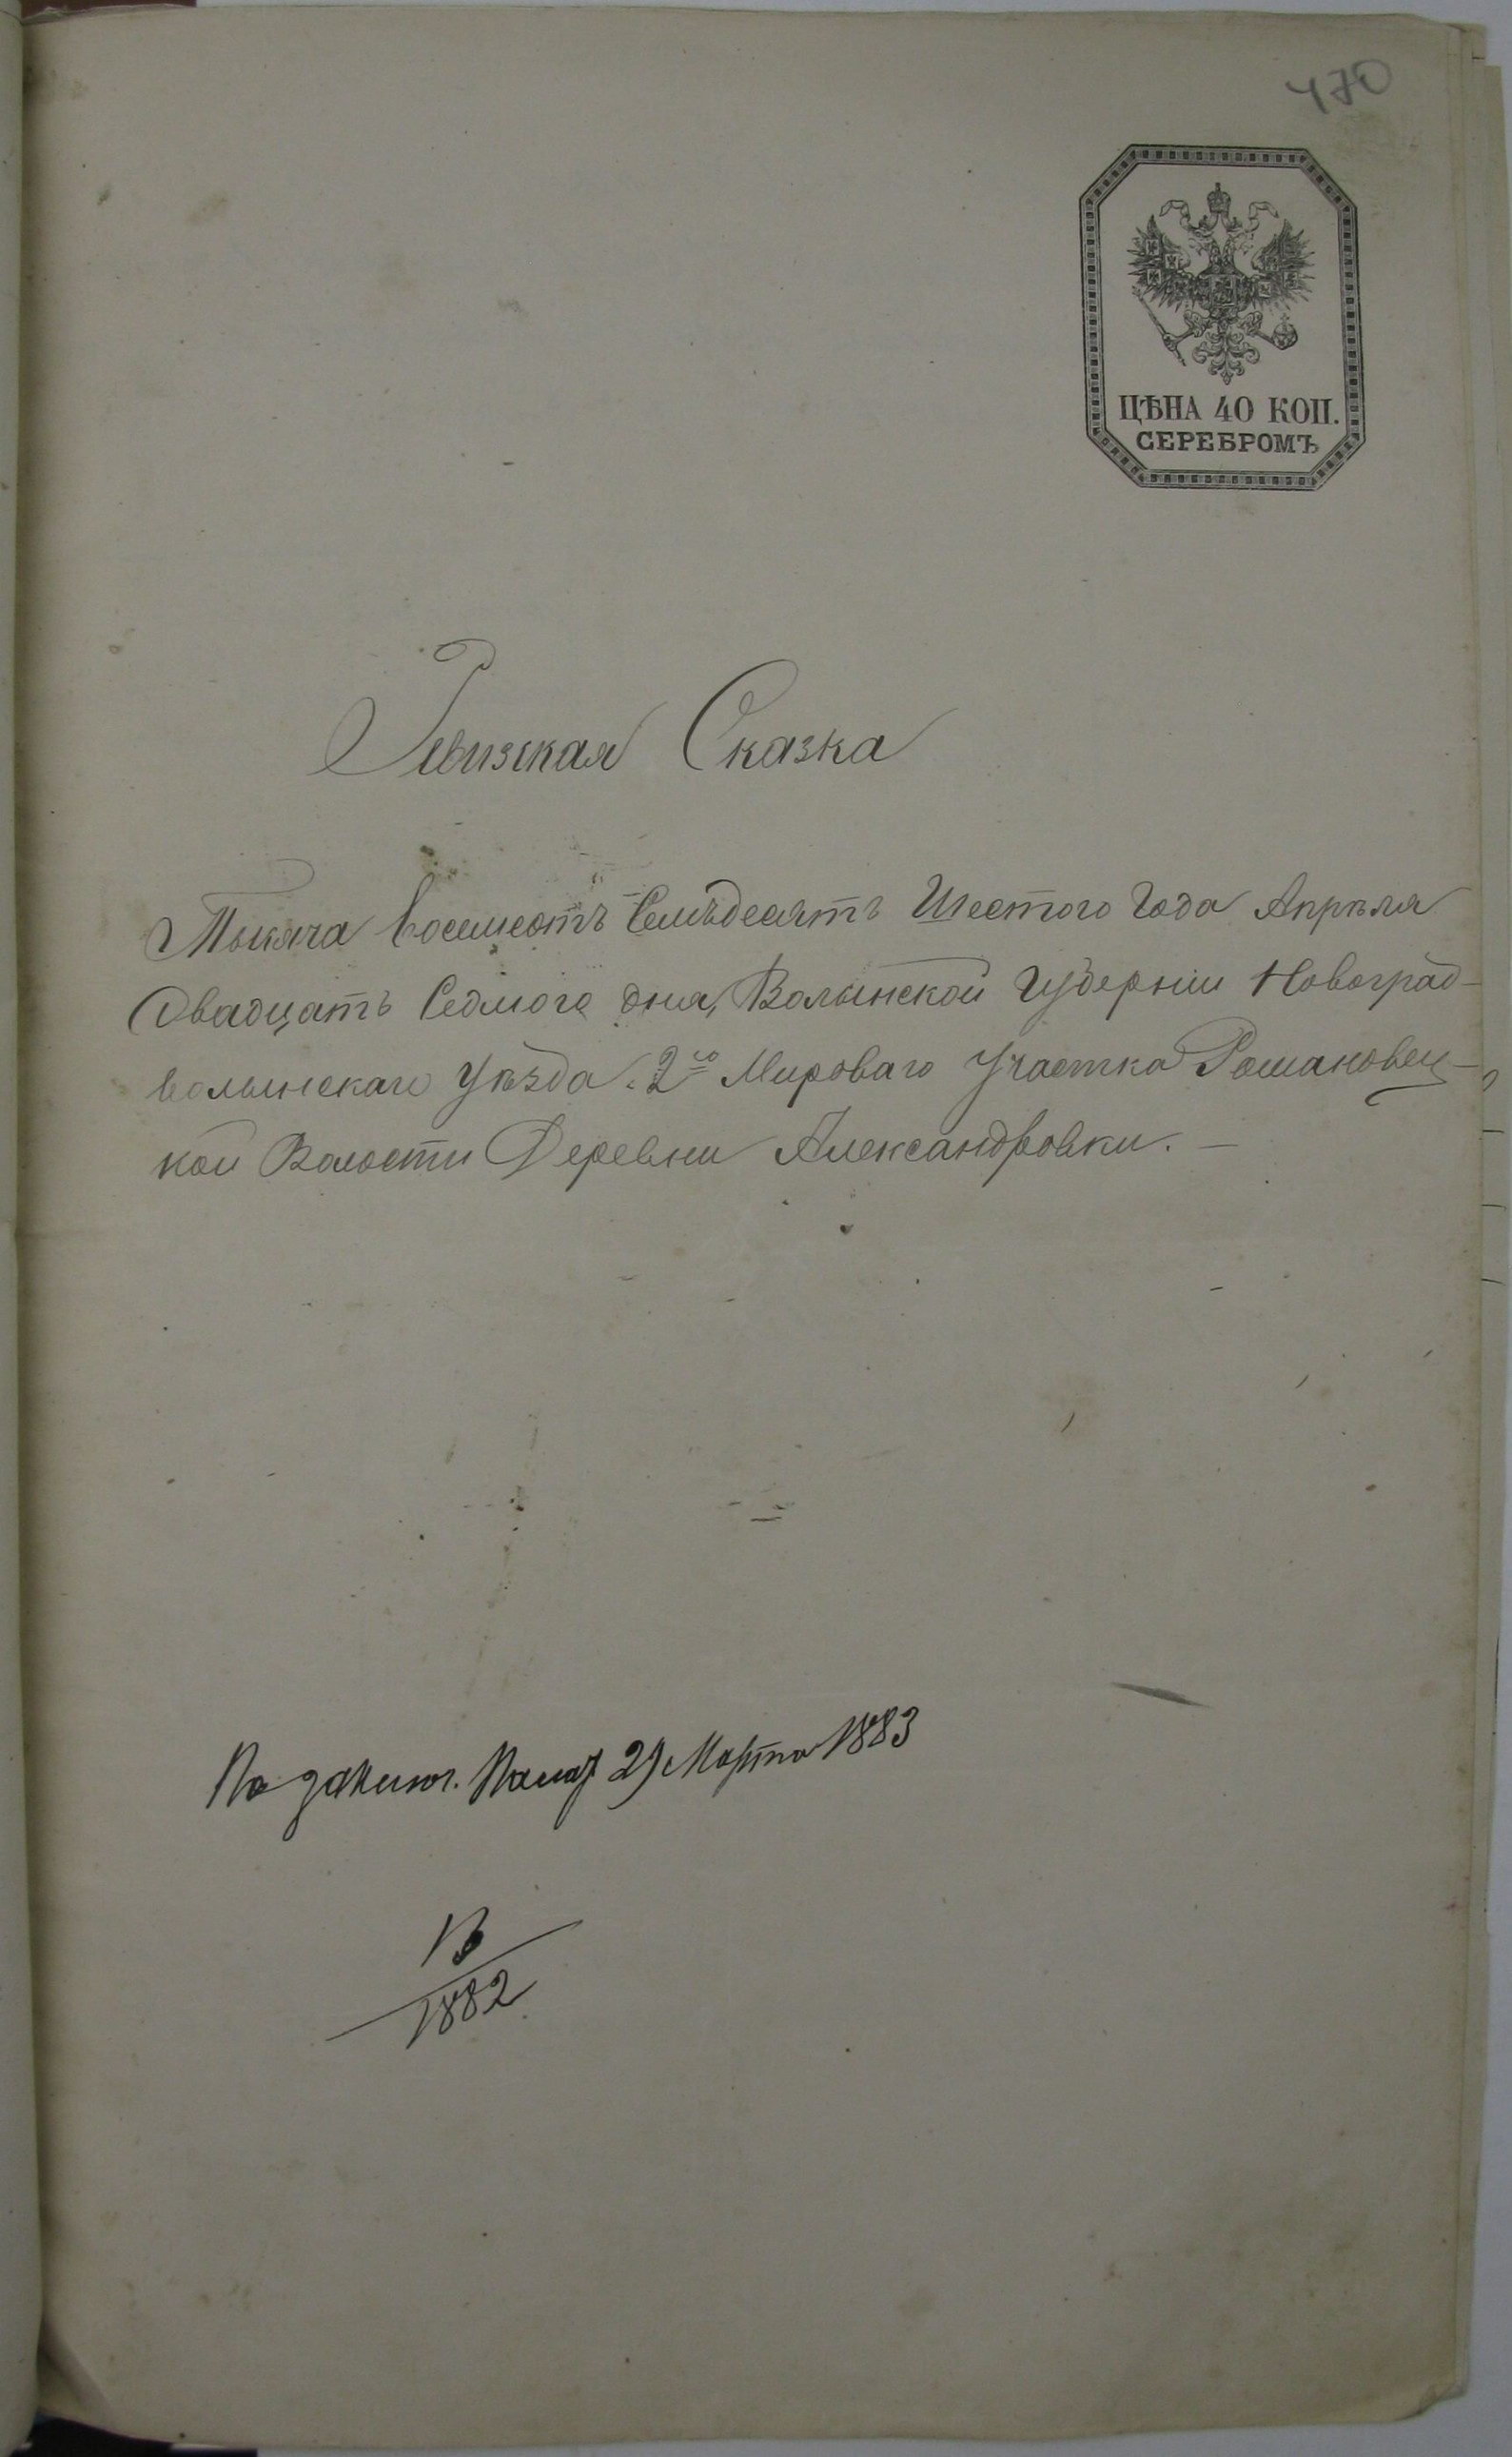 470
ЦѢНА 40 КОП.
СЕРЕБРОМЪ
Ревизская Сказка
Тысяча Восемсотъ Семьдесятъ Шестого Года Апрѣля
Двадцать Седмого дня, Волынской Губерніи Новоград-
волынскаго Уѣзда 2го Мироваго Участка Романовец-
кой Волости Деревни Александровки. —
По заключ. Палат 29 Марта 1883
1882